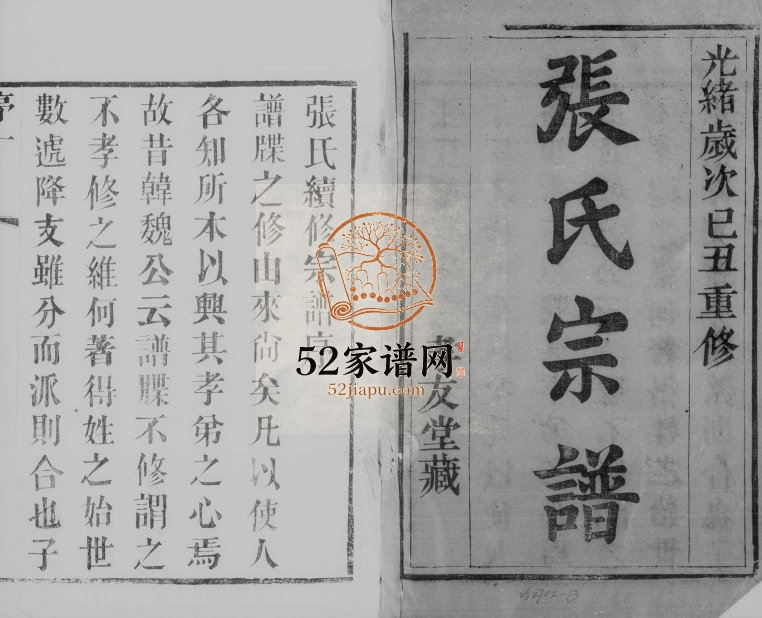 光緒歲次己丑重修
張氏宗譜
孝友堂藏
張氏續修宗譜序
譜牒之修由來尙矣凡以使人
各知所本以興其孝弟之心焉
故昔韓魏公云譜牒不修謂之
不孝修之維何著得姓之始世
數遞降支雖分而派則合也子
序一
52家谱网
52jiapu.com